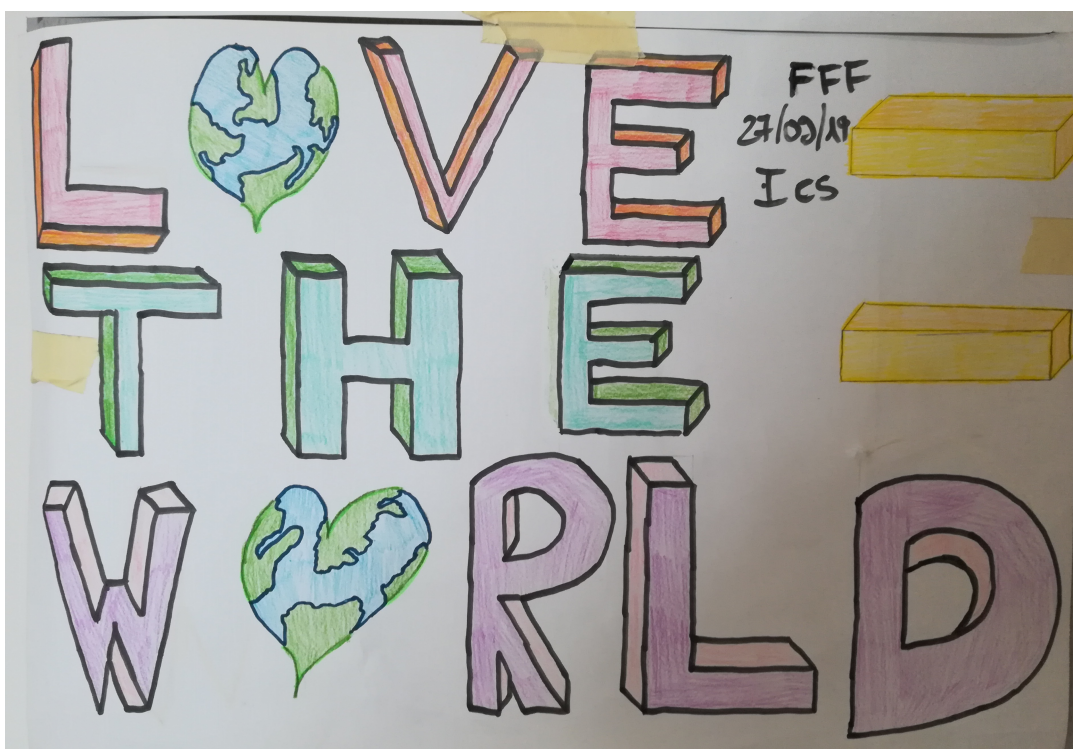 LOVE
FFF
27/09/19
Ics
THE
WORLD